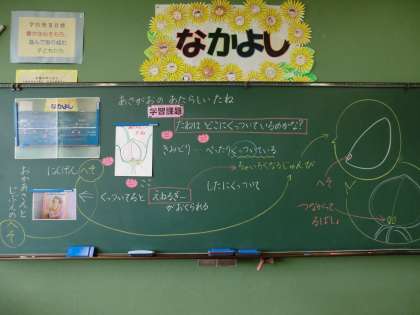 学校教育目標
なかよし
なかよし
あさがおの あたらしい たね
学習課題
たねは どこにくっついているのかな?
たね
きみどり… ぺったりくっついている
ちゃいろくなるじゅんび
にんげん へそ
おかあさんと
じぶんの
へそ
ここ
くっついてると えねるぎー
がおくられる
したにくっついて
へそ
つながって